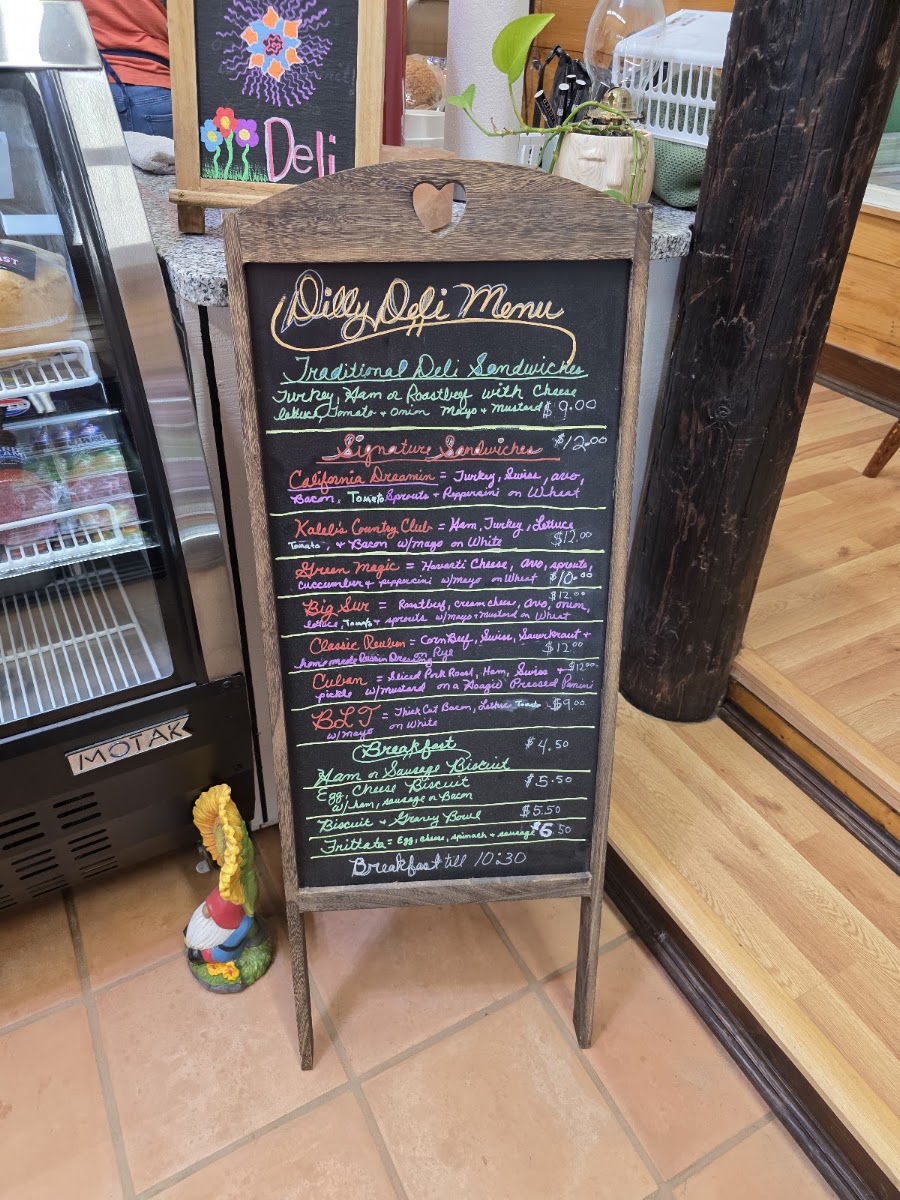 Deli
Dilly Deli Menu
Traditional Deli Sandwiches
Turkey, Ham or Roastbeef with Cheese
lettuce, Tomato + Onion Mayo + Mustard $9.00
Signature Sandwiches $12.00
California Dreamin = Turkey, Swiss, avo,
Bacon, Tomato Sprouts + Pepperoini on Wheat
Country Club = Ham, Turkey, Lettuce
Tomato, + Bacon w/mayo on White $12.00
Green Magic = Havarti Cheese, avo, sprouts,
cuccumber + pepperoini w/mayo on Wheat $10.00
$12.00
Big Sur = Roastbeef, cream cheese, avo, onion,
lettuce, Tomato + sprouts w/mayo + Mustard on Wheat
Classic Reuben = Corn Beef, Swiss, Sauerkraut +
homemade Dressing Rye $12.00
Cuban = Sliced Pork Roast, Ham, Swiss + $12.00
pickle w/mustard on a Hoagie Pressed Panini
B.L.T = Thick Cut Bacon, Lettuce Tomato $9.00
w/Mayo on White
Breakfast $4.50
Ham or Sausage Biscuit
Egg, Cheese Biscuit $5.50
w/ham, sausage or Bacon
Biscuit + Gravy Bowl $5.50
Frittata = Egg, cheese, spinach + sausage $6.50
Breakfast till 10:30
MOTAK